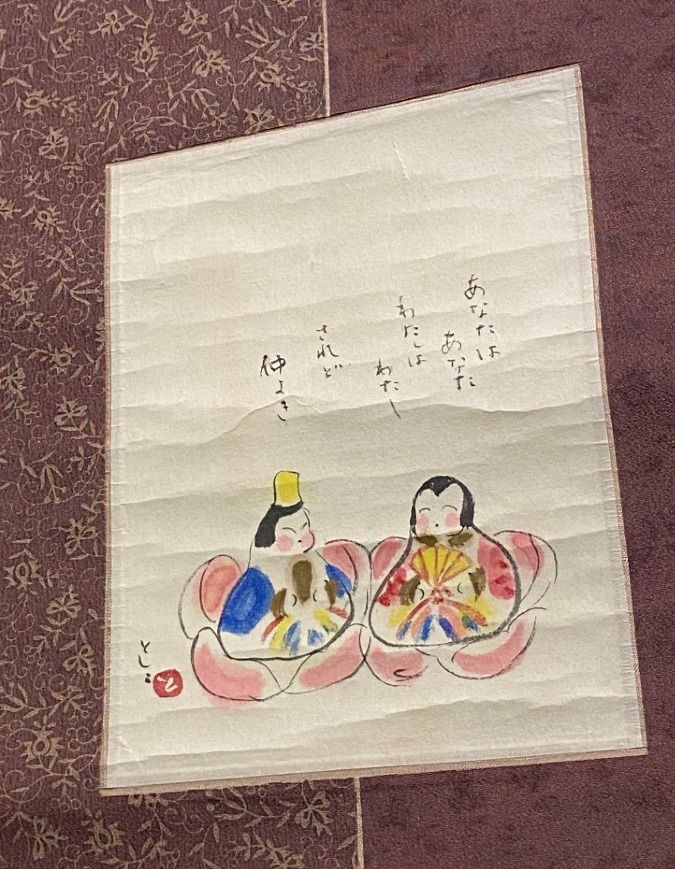 あなたは
あなた
わたしは
わたし
されど
仲よき
としこ
と